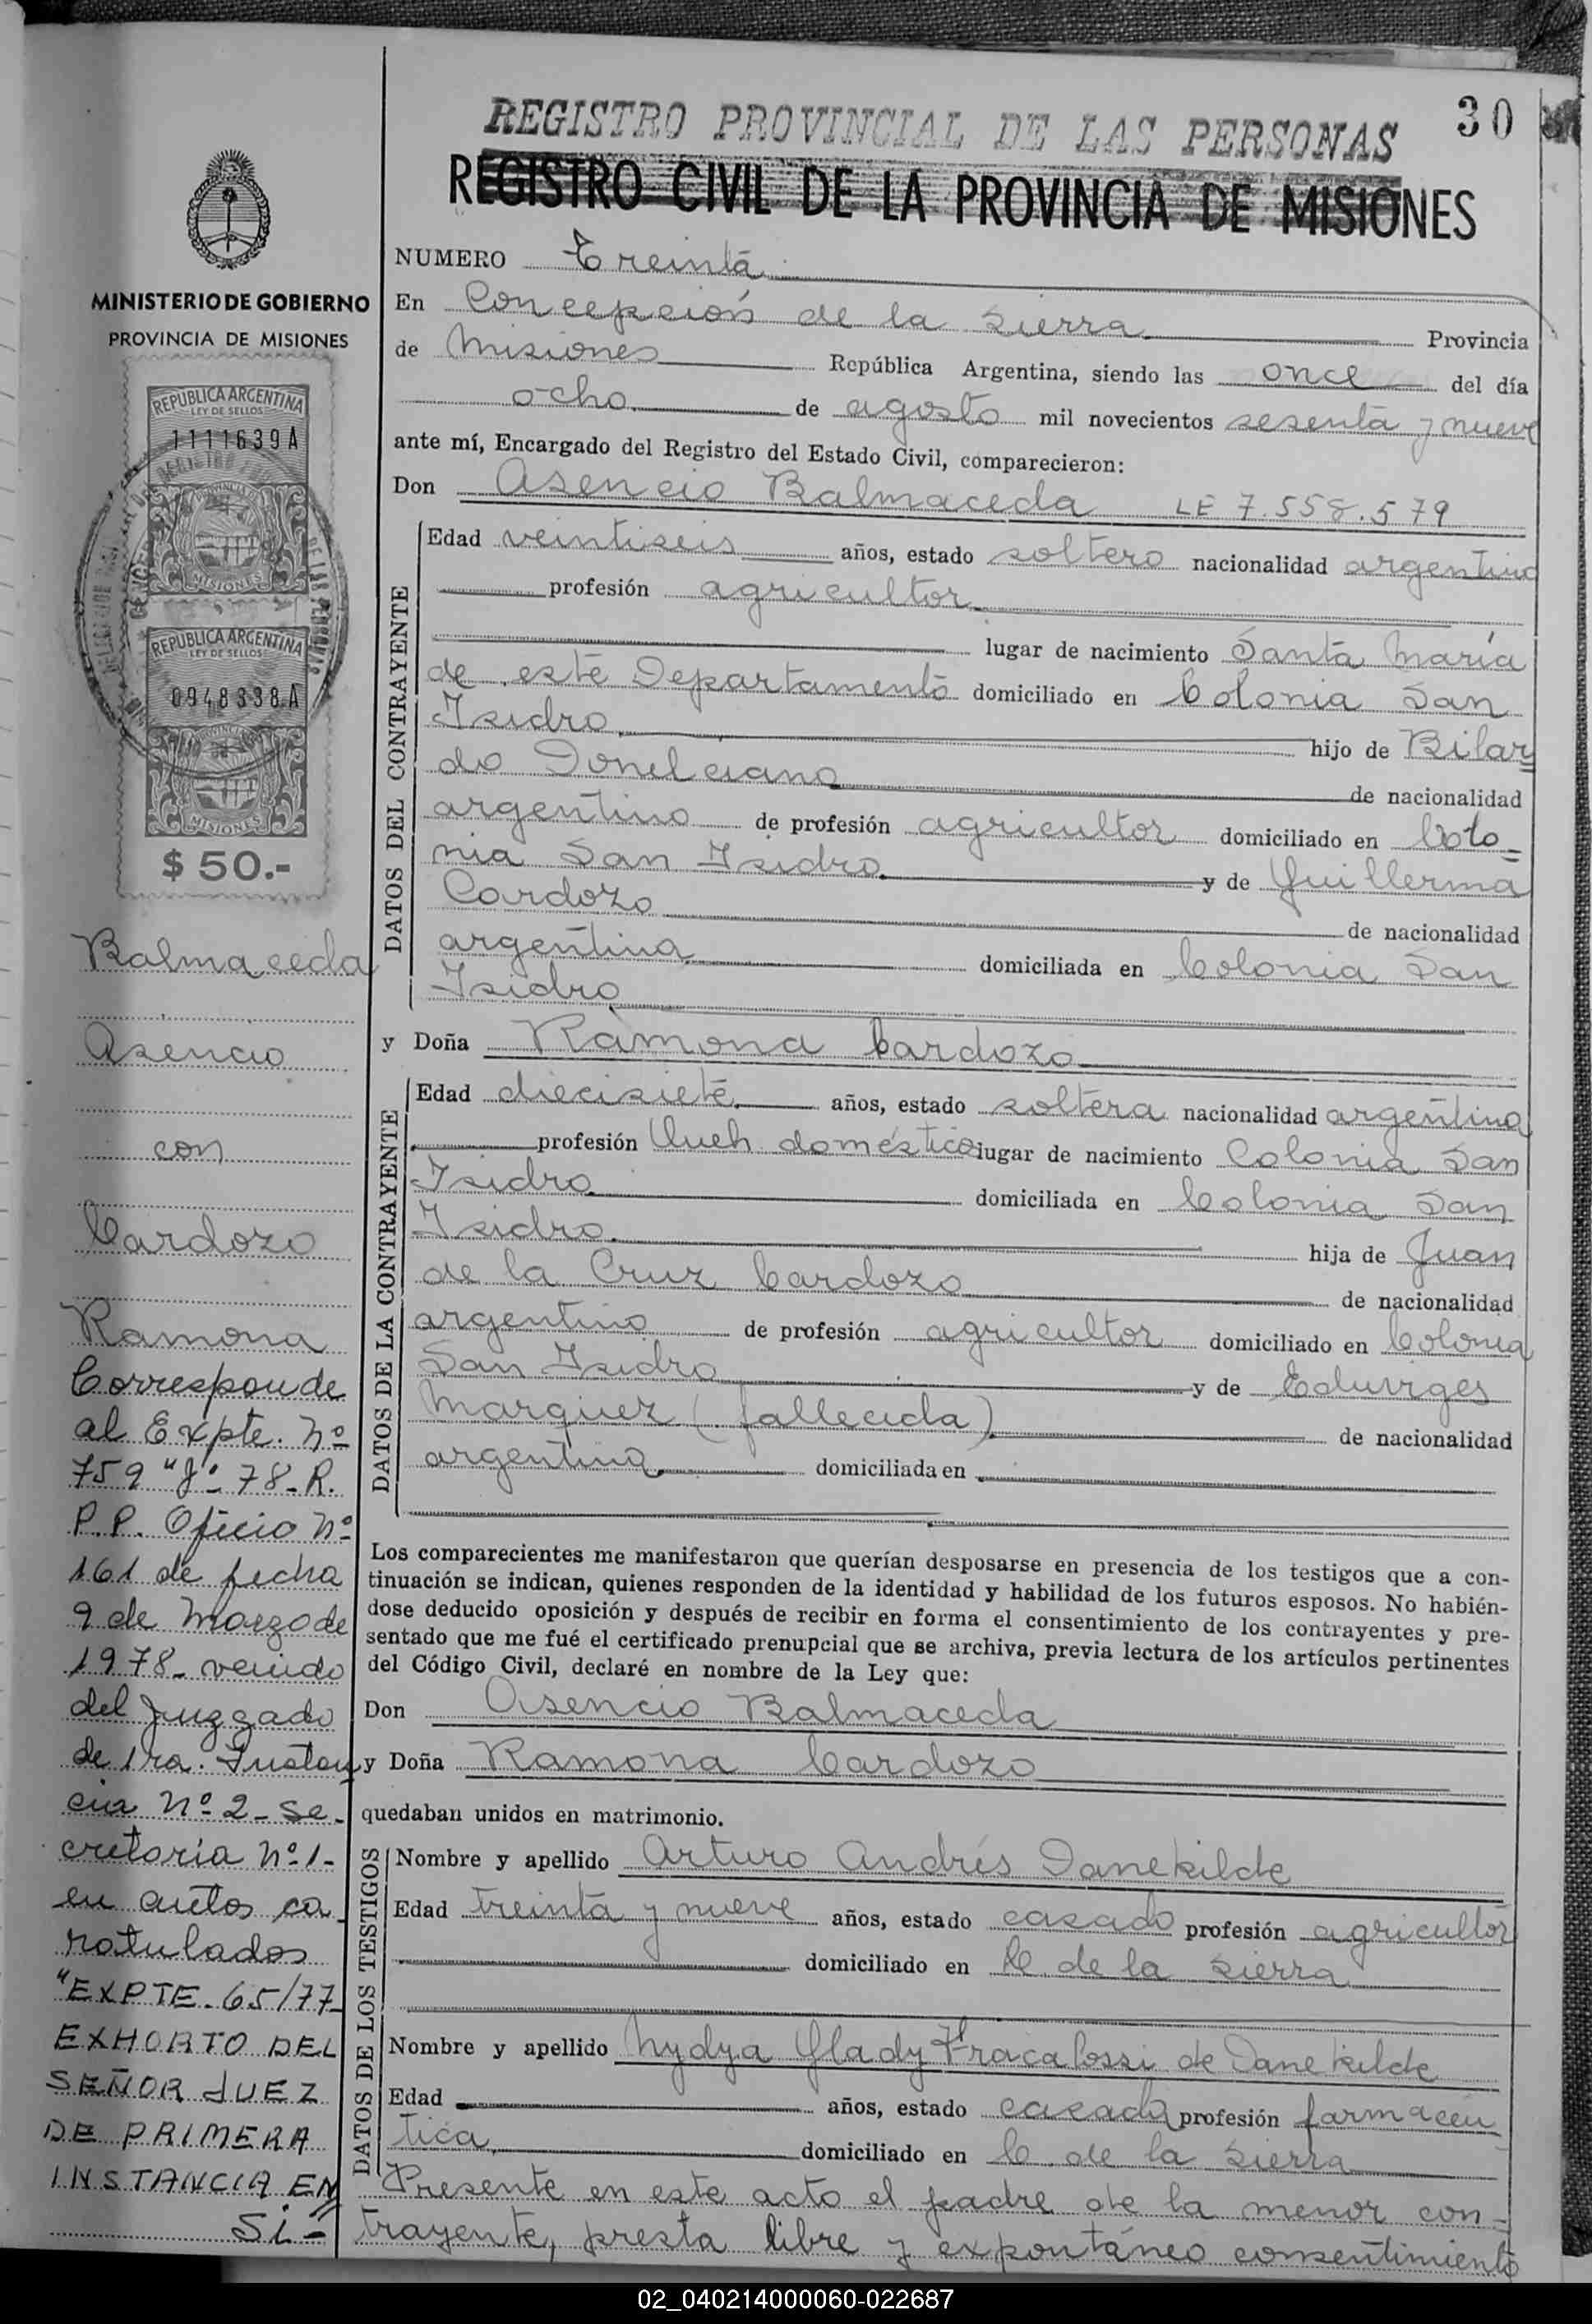 30
REGISTRO PROVINCIAL DE LAS PERSONAS
REGISTRO CIVIL DE LA PROVINCIA DE MISIONES
MINISTERIO DE GOBIERNO
PROVINCIA DE MISIONES
REPUBLICA ARGENTINA
LEY DE SELLOS
1111639A
MISIONES
REPUBLICA ARGENTINA
LEY DE SELLOS
0948838A
MISIONES
$ 50.-
Balmaceda
Asencio
con
Cardozo
Ramona
Corresponde
al Expte. Nº
759 "J"- 78-R.
P.P. Oficio Nº
161 de fecha
9 de Marzo de
1978- venido
del Juzgado
de 1ra. Instan
cia Nº 2- Se-
cretaria Nº 1-
en autos ca-
ratulados
"EXPTE. 65/77-
EXHORTO DEL
SEÑOR JUEZ
DE PRIMERA
INSTANCIA EN
Si-
NUMERO Treinta
En Concepción de la Sierra Provincia
de Misiones República Argentina, siendo las once del día
ocho de agosto mil novecientos sesenta y nueve
ante mí, Encargado del Registro del Estado Civil, comparecieron:
Don Asencio Balmaceda LE 7.558.579
DATOS DEL CONTRAYENTE
Edad veintiseis años, estado soltero nacionalidad argentino
profesión agricultor
lugar de nacimiento Santa María
de este Departamento domiciliado en Colonia San
Isidro hijo de Bilar
do Doneleiano de nacionalidad
argentino de profesión agricultor domiciliado en Colo-
nia San Isidro y de Guillerma
Cardozo de nacionalidad
argentina domiciliada en Colonia San
Isidro
y Doña Ramona Cardozo
DATOS DE LA CONTRAYENTE
Edad diecisiete años, estado soltera nacionalidad argentina
profesión Queh. domésticos lugar de nacimiento Colonia San
Isidro domiciliada en Colonia San
Isidro hija de Juan
de la Cruz Cardozo de nacionalidad
argentino de profesión agricultor domiciliado en Colonia
San Isidro y de Eduviges
Marquez (fallecida) de nacionalidad
argentina domiciliada en
Los comparecientes me manifestaron que querían desposarse en presencia de los testigos que a con-
tinuación se indican, quienes responden de la identidad y habilidad de los futuros esposos. No habién-
dose deducido oposición y después de recibir en forma el consentimiento de los contrayentes y pre-
sentado que me fué el certificado prenupcial que se archiva, previa lectura de los artículos pertinentes
del Código Civil, declaré en nombre de la Ley que:
Don Asencio Balmaceda
y Doña Ramona Cardozo
quedaban unidos en matrimonio.
DATOS DE LOS TESTIGOS
Nombre y apellido Arturo Andrés Danekilde
Edad treinta y nueve años, estado casado profesión agricultor
domiciliado en C. de la Sierra
Nombre y apellido Nydya Glady Fracalossi de Danekilde
Edad años, estado casada profesión farmaceu
tica domiciliado en C. de la Sierra
Presente en este acto el padre de la menor con-
trayente, presta libre y expontáneo consentimiento
02_040214000060-022687